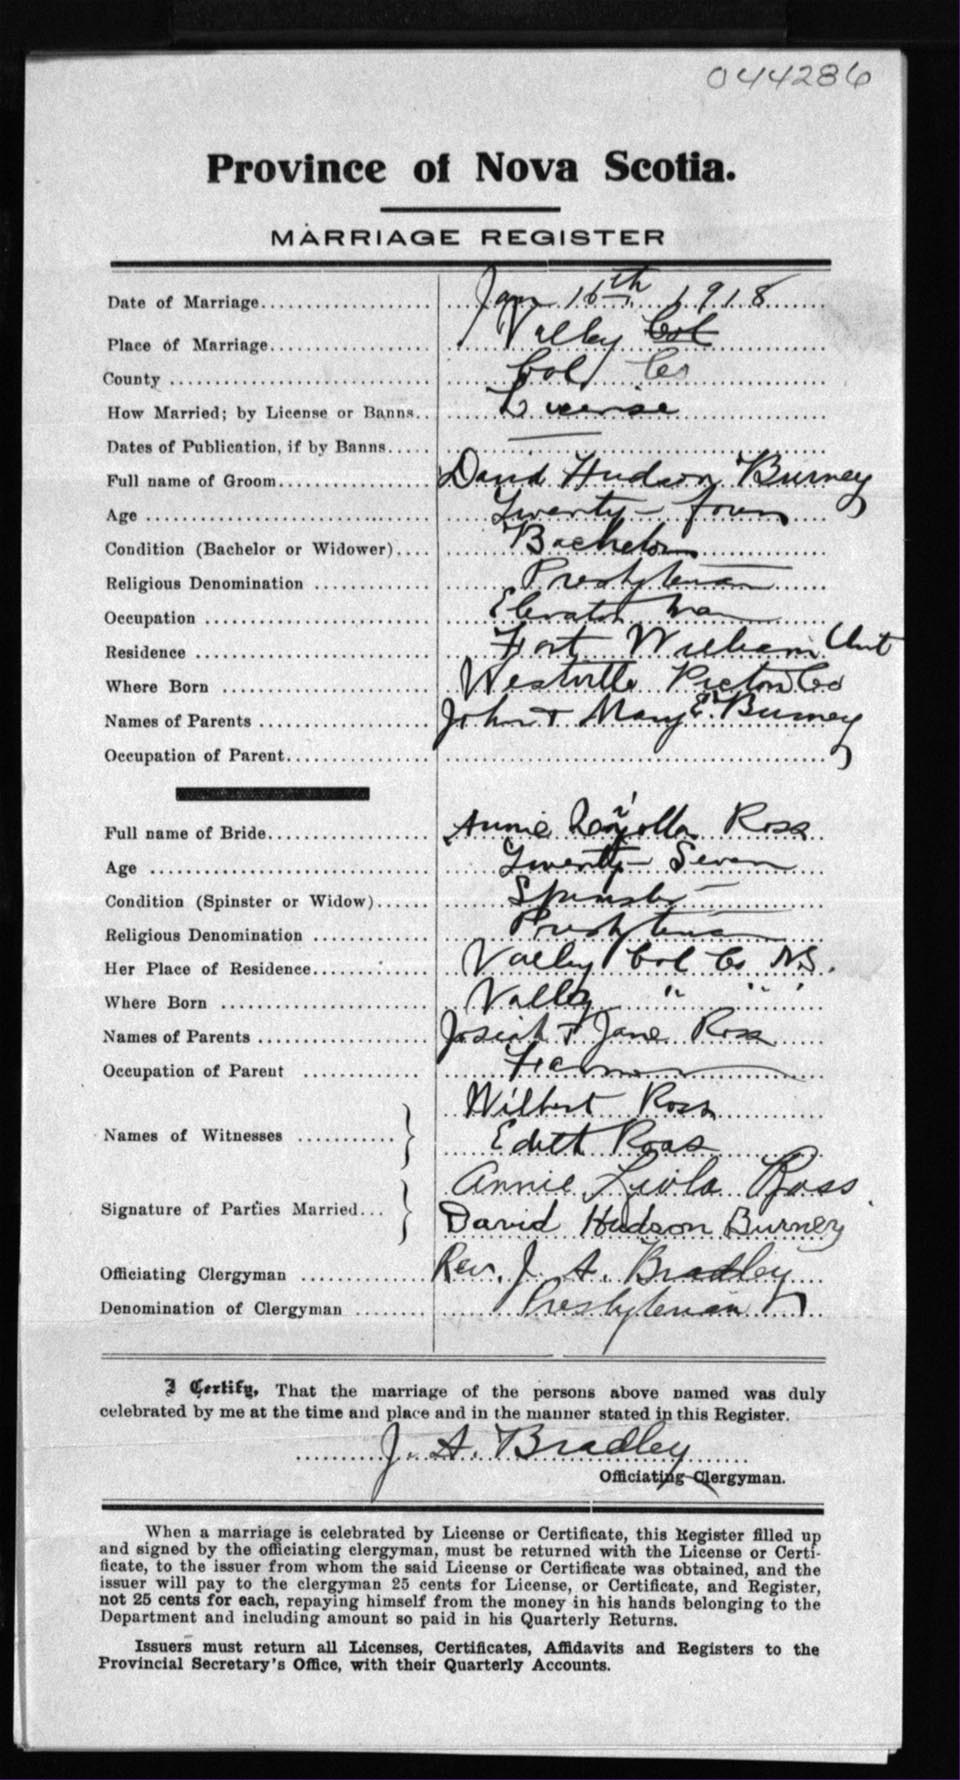 044286
Province of Nova Scotia.
MARRIAGE REGISTER
Date of Marriage Jan 16th 1918
Place of Marriage Valley Col
County Col Co
How Married; by License or Banns License
Dates of Publication, if by Banns
Full name of Groom David Hudson Burney
Age Twenty-four
Condition (Bachelor or Widower) Bachelor
Religious Denomination Presbyterian
Occupation Elevator Man
Residence Fort William Ont
Where Born Westville Pictou Co
Names of Parents John & Mary E. Burney
Occupation of Parent
Full name of Bride Annie Ross
Age Twenty-Seven
Condition (Spinster or Widow) Spinster
Religious Denomination Presbyterian
Her Place of Residence Valley Col Co N.S.
Where Born Valley " " "
Names of Parents Josiah & Jane Ross
Occupation of Parent Farmer
Names of Witnesses Wilbert Ross
Edith Ross
Signature of Parties Married Annie Liola Ross
David Hudson Burney
Officiating Clergyman Rev. J. A. Bradley
Denomination of Clergyman Presbyterian
I Certify, That the marriage of the persons above named was duly
celebrated by me at the time and place and in the manner stated in this Register.
J. A. Bradley
Officiating Clergyman.
When a marriage is celebrated by License or Certificate, this Register filled up
and signed by the officiating clergyman, must be returned with the License or Certi-
ficate, to the issuer from whom the said License or Certificate was obtained, and the
issuer will pay to the clergyman 25 cents for License, or Certificate, and Register,
not 25 cents for each, repaying himself from the money in his hands belonging to the
Department and including amount so paid in his Quarterly Returns.
Issuers must return all Licenses, Certificates, Affidavits and Registers to the
Provincial Secretary's Office, with their Quarterly Accounts.